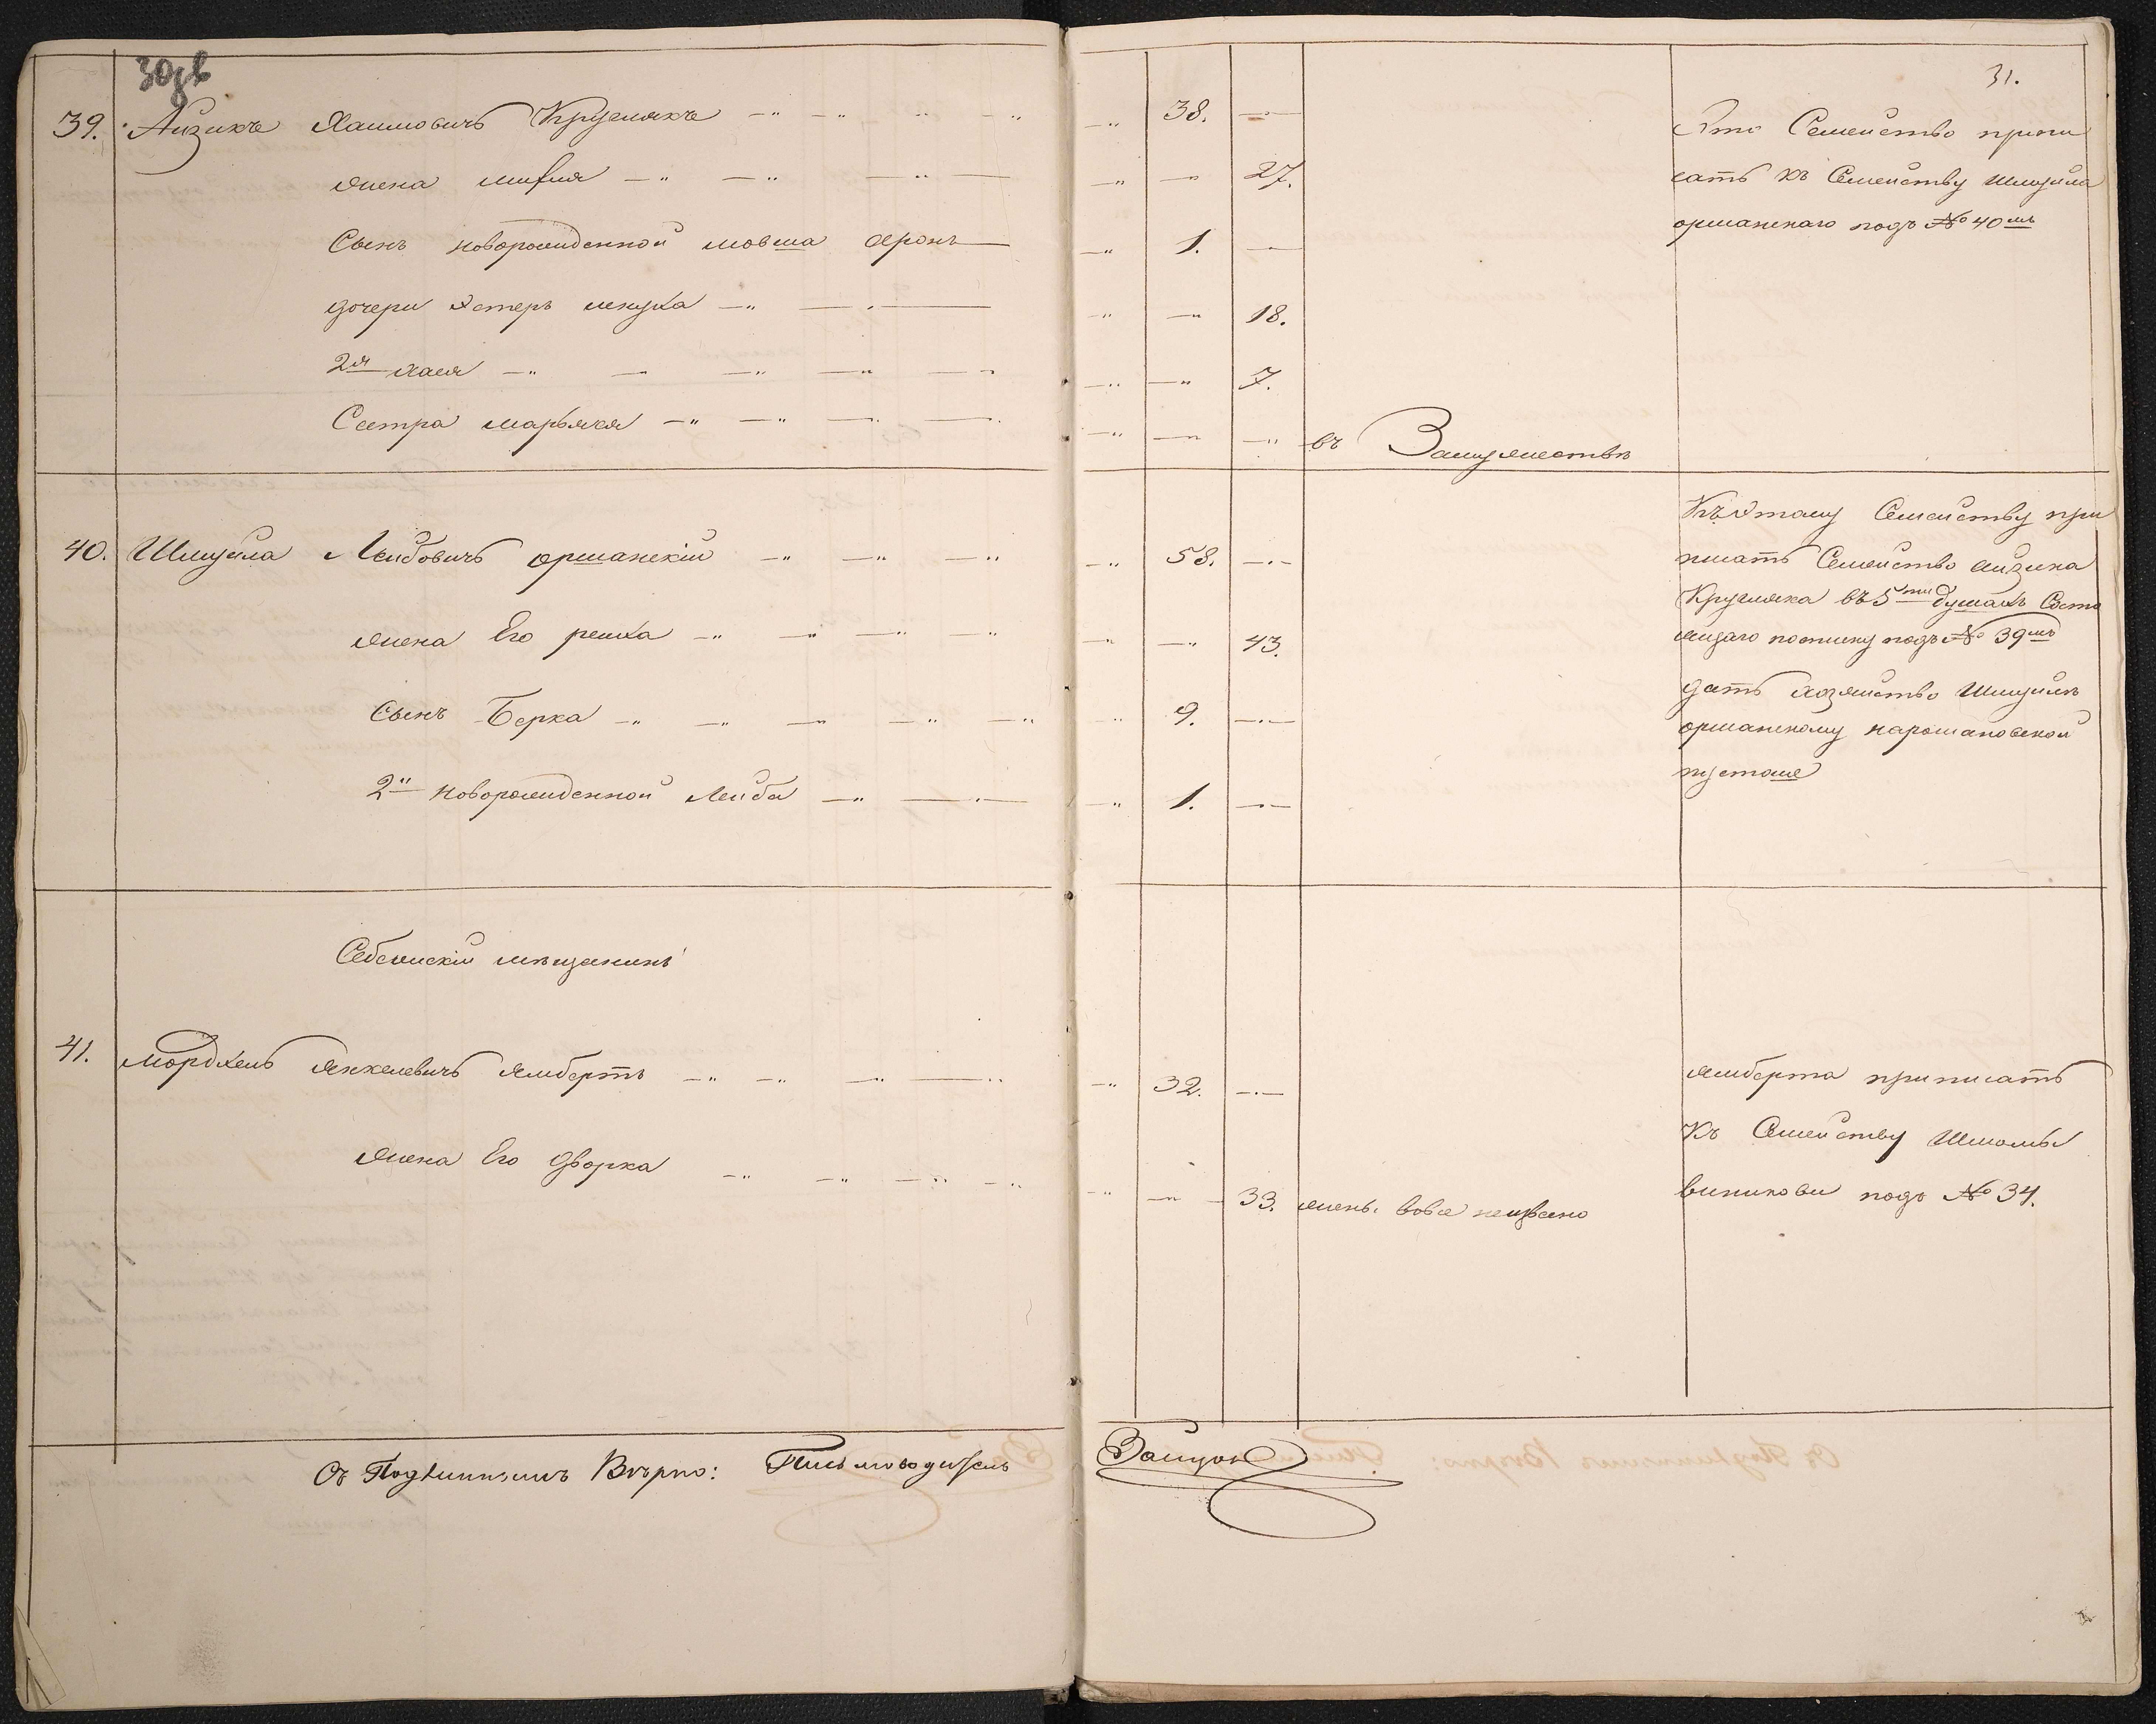 30 об
31.
39. Айзикъ Хаимовичъ Круглякъ 38.
жена 27.
Сынъ новорожденной мовша аронъ 1.
дочери Эстеръ 18.
2я хася 7.
Сестра марьяся въ Замужествѣ
Это Семейство припи
сать къ Семейству Шмуйла
оршанскаго подъ № 40мъ
40. Шмуйла Лейбовичъ оршанскій 58.
жена Его решка 43.
Сынъ Берка 9.
2й новорожденной Лейба 1.
Къ Этому Семейству при
писать Семейство айзика
Кругляка въ 5ти душахъ Состо
ящаго подъ № 39мъ
дать хозяйство Шмуйлѣ
оршанскому
пустоше
Себежскій мѣщанинъ
41. мордхель янкелевичъ ямбертъ 32.
жена Его дворка 33.
ямберта приписать
Къ Семейству Шмойлы
виникови подъ № 34.
Съ Подлиннымъ Вѣрно: Письмоводитель